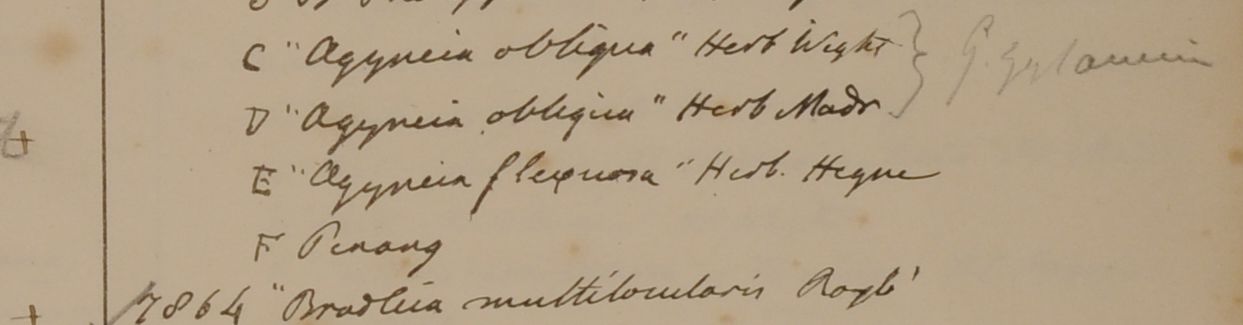 C "Agyneia obliqua" Herb Wight
D "Agyneia obliqua" Herb Madr
E "Agyneia flexuosa" Herb. Heyne
F Penang
7864 "Bradleia multilocularis Roxb'